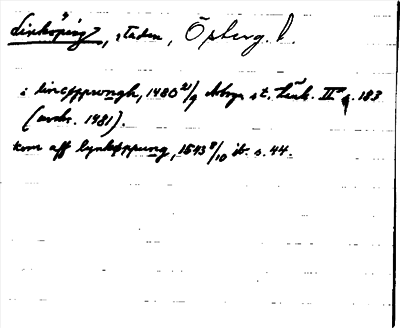 Linköping, staden, Österg. l.
i lincøppwngh, 1480 21/9 st. Link. II s. 183
(avskr. 1481).
kom aff lynkøppung, 1543 8/10 ib. s. 44.